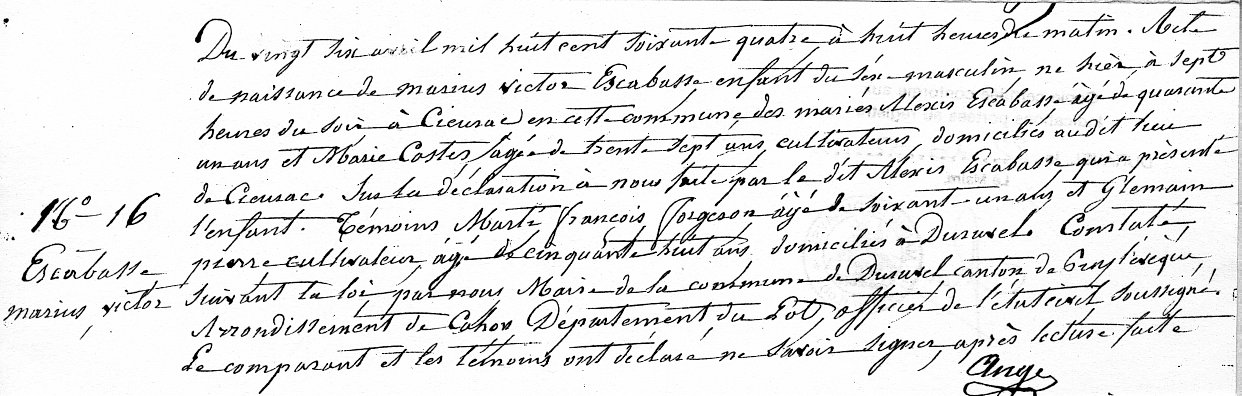 Du vingt six avril mil huit cent soixante quatre, à huit heures de matin. Acte
de naissance de marius victor Escabasse enfant du séx-masculin ne hièr, à sept
heures du soir à Cieurac en cette commune, des mariés Alexis Escabasse âgé de quarante
un ans et Marie Costes, âgée de trente sept ans, cultivateurs, domiciliés au dit lieu
de Cieurac. Sur la déclaration à nous faite par le dit Alexis Escabasse qui a présenté
N° 16 l'enfant. Témoins Marté françois forgeron âgé de soixant-un ans et Glemain
Escabasse pierre cultivateur, âgé de cinquante huit ans, domiciliés à Duravel. Constaté,
marius, victor suivant la loi, par nous Maire de la commune de Duravel canton de Puylévèque
Arrondissement de Cahors Département du Lot, officier de l'état civil soussigné.
Le comparant et les témoins ont déclaré ne savoir signer, après lecture faite
Ange